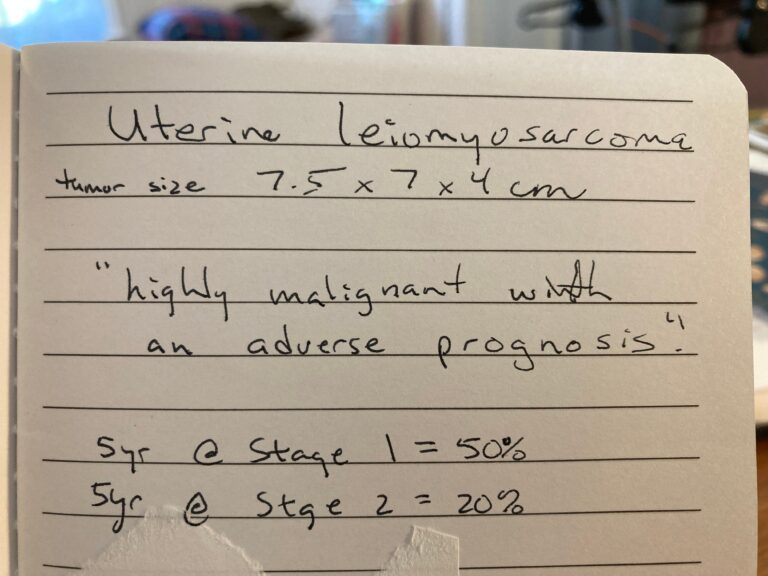 Uterine leiomyosarcoma
tumor size 7.5 x 7 x 4 cm
"highly malignant with
an adverse prognosis".
5yr @ Stage 1 = 50%
5yr @ Stge 2 = 20%